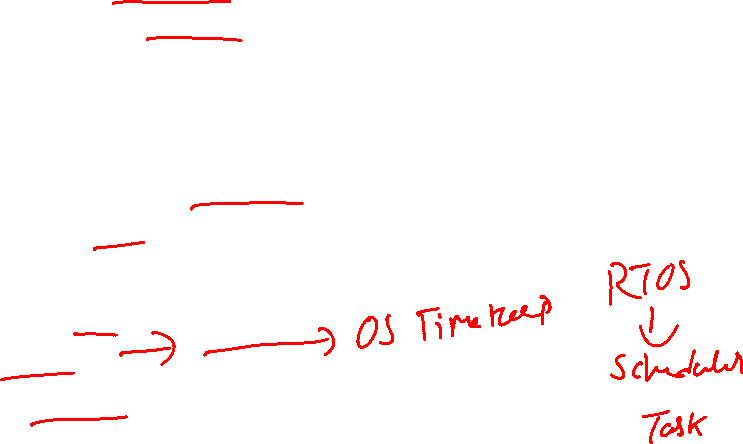 OS Timekeep
RTOS
Scheduler
Task